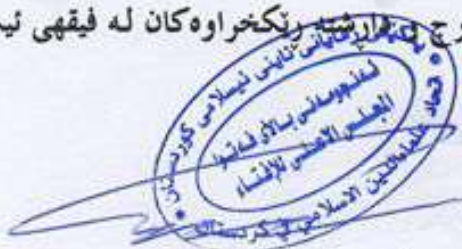 رج و دارشتنه ڕێکخراوەکان لە فیقهی ئیس
یەکێتی زانایانی ئاینی ئیسلامی کوردستان
ئەنجومەنی باڵای فەتوا
المجلس الاعلى للإفتاء
اتحاد علماء الدين الاسلامي في كردستان